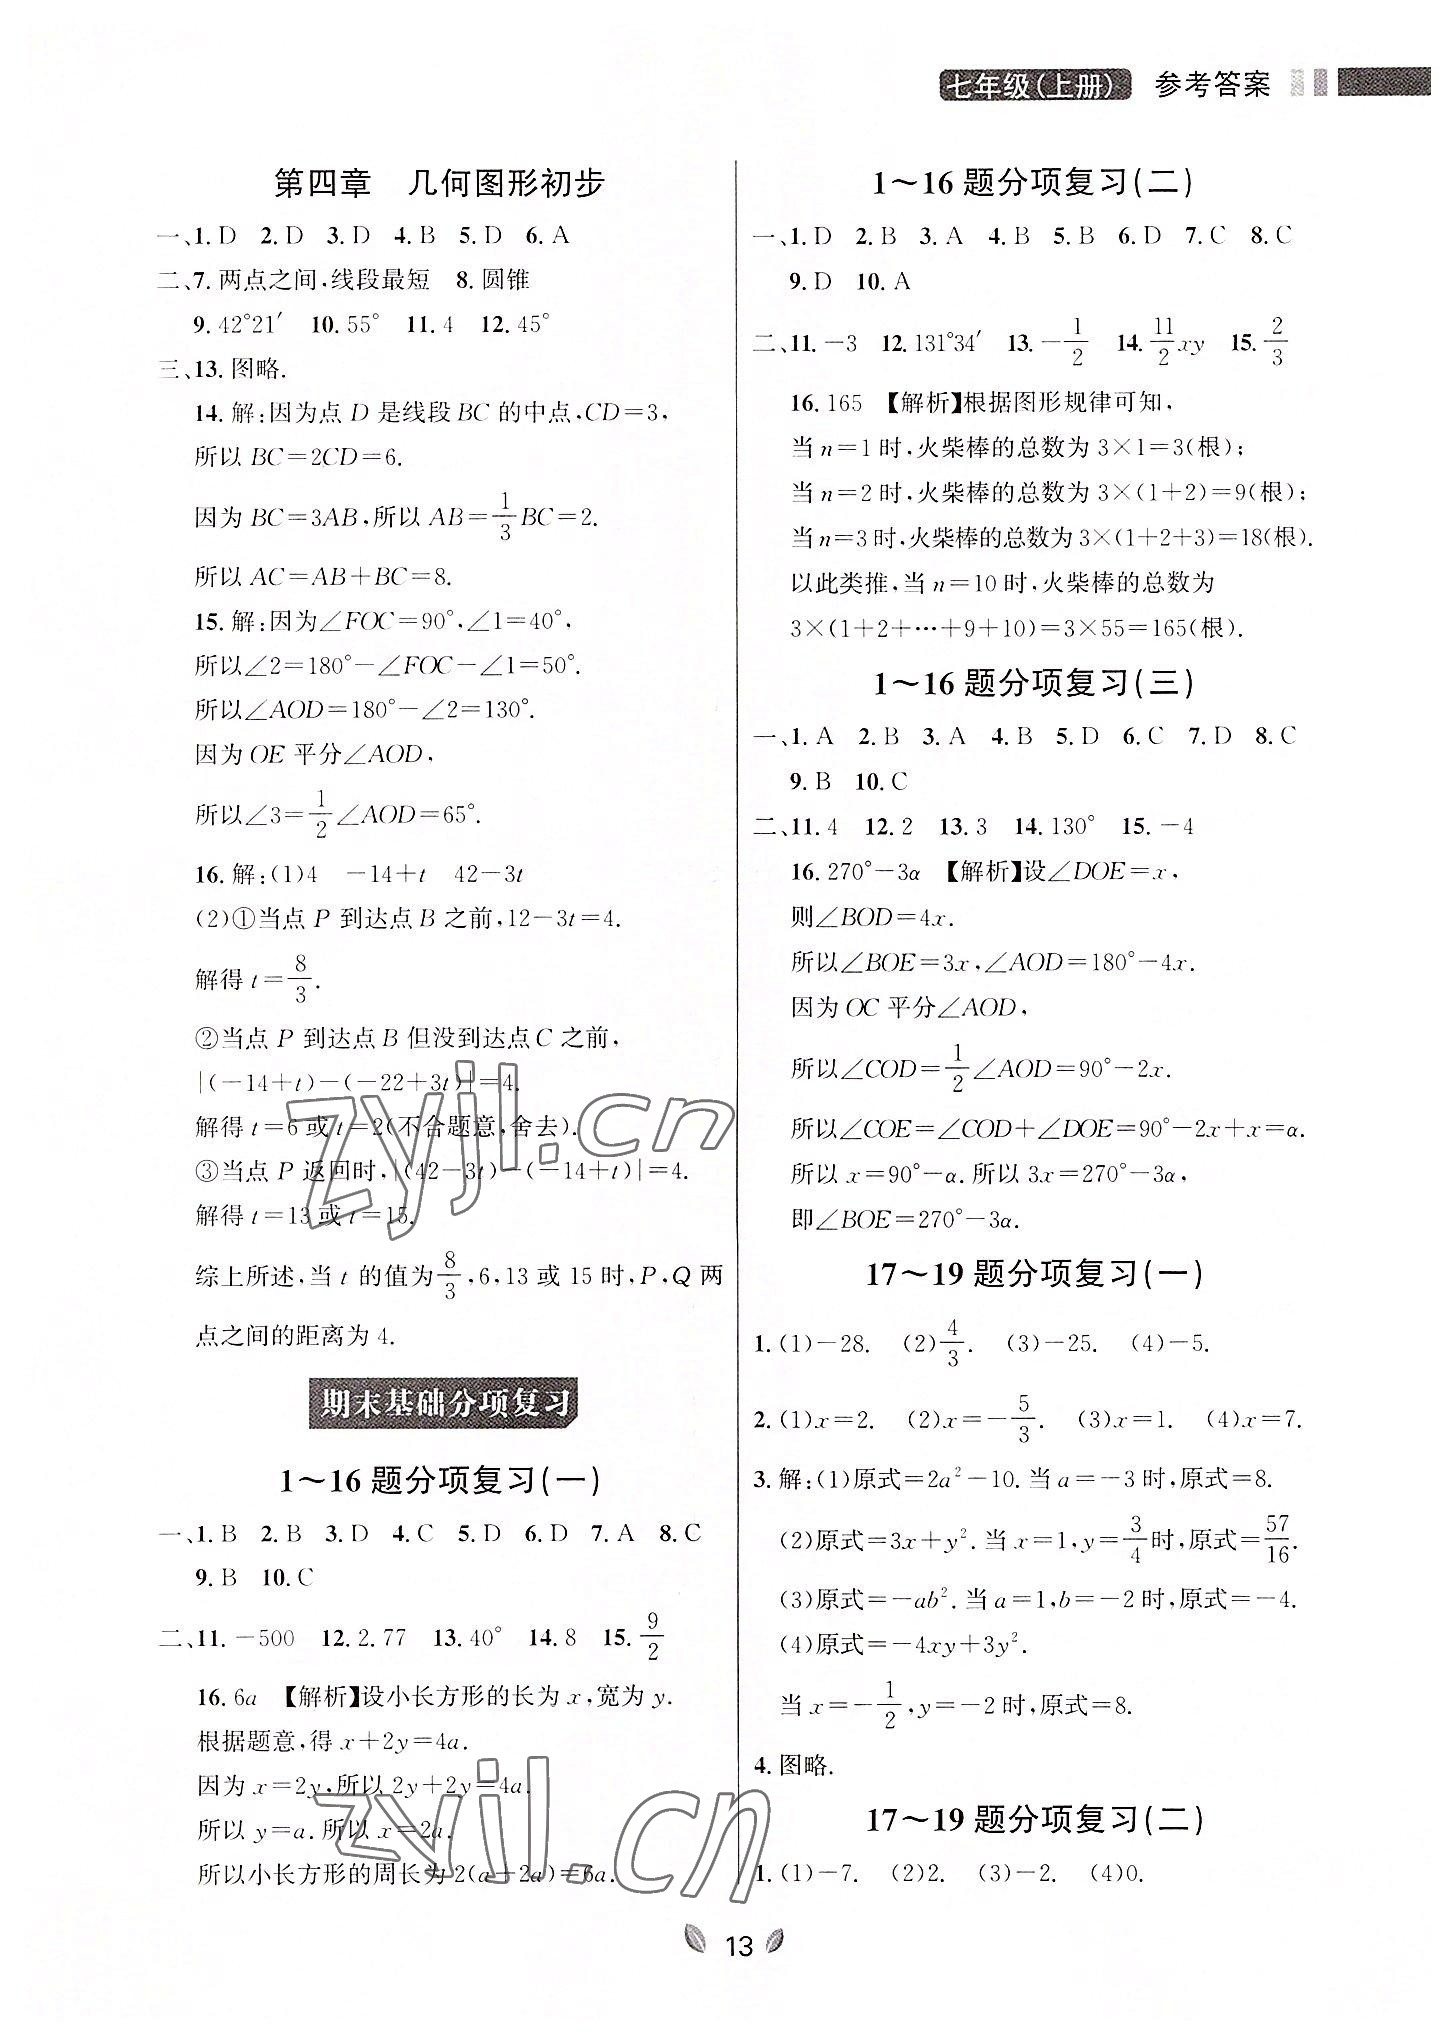 七年级(上册) 参考答案
第四章 几何图形初步
一、1. D 2. D 3. D 4. B 5. D 6. A
二、7. 两点之间,线段最短 8. 圆锥
9. 42°21′ 10. 55° 11. 4 12. 45°
三、13. 图略.
14. 解:因为点 D 是线段 BC 的中点,CD=3,
所以 BC=2CD=6.
因为 BC=3AB,所以 AB=1/3 BC=2.
所以 AC=AB+BC=8.
15. 解:因为∠FOC=90°,∠1=40°,
所以∠2=180°-∠FOC-∠1=50°.
所以∠AOD=180°-∠2=130°.
因为 OE 平分∠AOD,
所以∠3=1/2∠AOD=65°.
16. 解:(1)4 -14+t 42-3t
(2)①当点 P 到达点 B 之前,12-3t=4.
解得 t=8/3.
②当点 P 到达点 B 但没到达点 C 之前,
|(-14+t)-(-22+3t)|=4.
解得 t=6 或 t=2(不合题意,舍去).
③当点 P 返回时,|(42-3t)-(-14+t)|=4.
解得 t=13 或 t=15.
综上所述,当 t 的值为8/3,6,13 或 15 时,P,Q 两
点之间的距离为 4.
期末基础分项复习
1～16 题分项复习(一)
一、1. B 2. B 3. D 4. C 5. D 6. D 7. A 8. C
9. B 10. C
二、11. -500 12. 2.77 13. 40° 14. 8 15. 9/2
16. 6a 【解析】设小长方形的长为 x,宽为 y.
根据题意,得 x+2y=4a.
因为 x=2y,所以 2y+2y=4a.
所以 y=a. 所以 x=2a.
所以小长方形的周长为 2(a+2a)=6a.
1～16 题分项复习(二)
一、1. D 2. B 3. A 4. B 5. B 6. D 7. C 8. C
9. D 10. A
二、11. -3 12. 131°34′ 13. -1/2 14. 11/2 xy 15. 2/3
16. 165 【解析】根据图形规律可知,
当 n=1 时,火柴棒的总数为 3×1=3(根);
当 n=2 时,火柴棒的总数为 3×(1+2)=9(根);
当 n=3 时,火柴棒的总数为 3×(1+2+3)=18(根).
以此类推,当 n=10 时,火柴棒的总数为
3×(1+2+…+9+10)=3×55=165(根).
1～16 题分项复习(三)
一、1. A 2. B 3. A 4. B 5. D 6. C 7. D 8. C
9. B 10. C
二、11. 4 12. 2 13. 3 14. 130° 15. -4
16. 270°-3α 【解析】设∠DOE=x,
则∠BOD=4x.
所以∠BOE=3x,∠AOD=180°-4x.
因为 OC 平分∠AOD,
所以∠COD=1/2∠AOD=90°-2x.
所以∠COE=∠COD+∠DOE=90°-2x+x=α.
所以 x=90°-α. 所以 3x=270°-3α,
即∠BOE=270°-3α.
17～19 题分项复习(一)
1. (1)-28. (2)4/3. (3)-25. (4)-5.
2. (1)x=2. (2)x=-5/3. (3)x=1. (4)x=7.
3. 解:(1)原式=2a²-10. 当 a=-3 时,原式=8.
(2)原式=3x+y². 当 x=1,y=3/4 时,原式=57/16.
(3)原式=-ab². 当 a=1,b=-2 时,原式=-4.
(4)原式=-4xy+3y².
当 x=-1/2,y=-2 时,原式=8.
4. 图略.
17～19 题分项复习(二)
1. (1)-7. (2)2. (3)-2. (4)0.
13
zyjl.cn
zyjl.cn